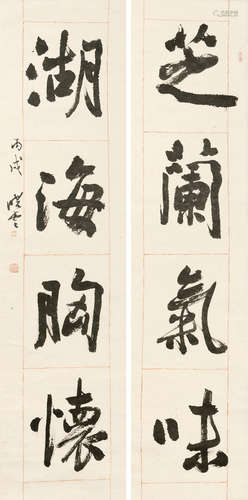 芝蘭氣味
湖海胸懷
丙戌 曉雲